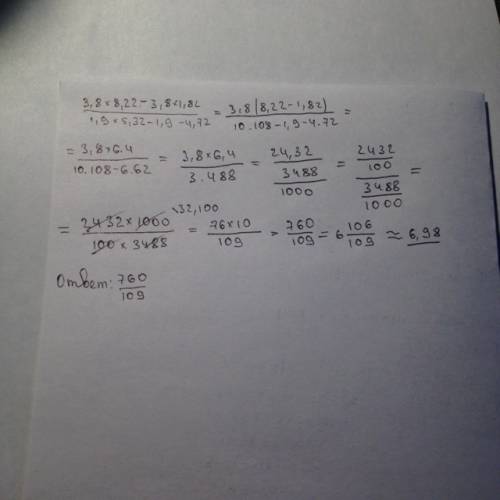 3,8×8,22-3,8×1,82 / 1,9×5,32-1,9-4,72 = 3.8(8,22-1,82) / 10.108-1,9-4.72 =
= 3,8×6.4 / 10.108-6.62 = 3,8×6,4 / 3.488 = 24,32 / 3488/1000 = 2432/100 / 3488/1000 =
= 2432×1000 / 100×3488 ×32,100 = 76×10 / 109 = 760/109 = 6 106/109 ≈ 6,98
Ответ: 760/109